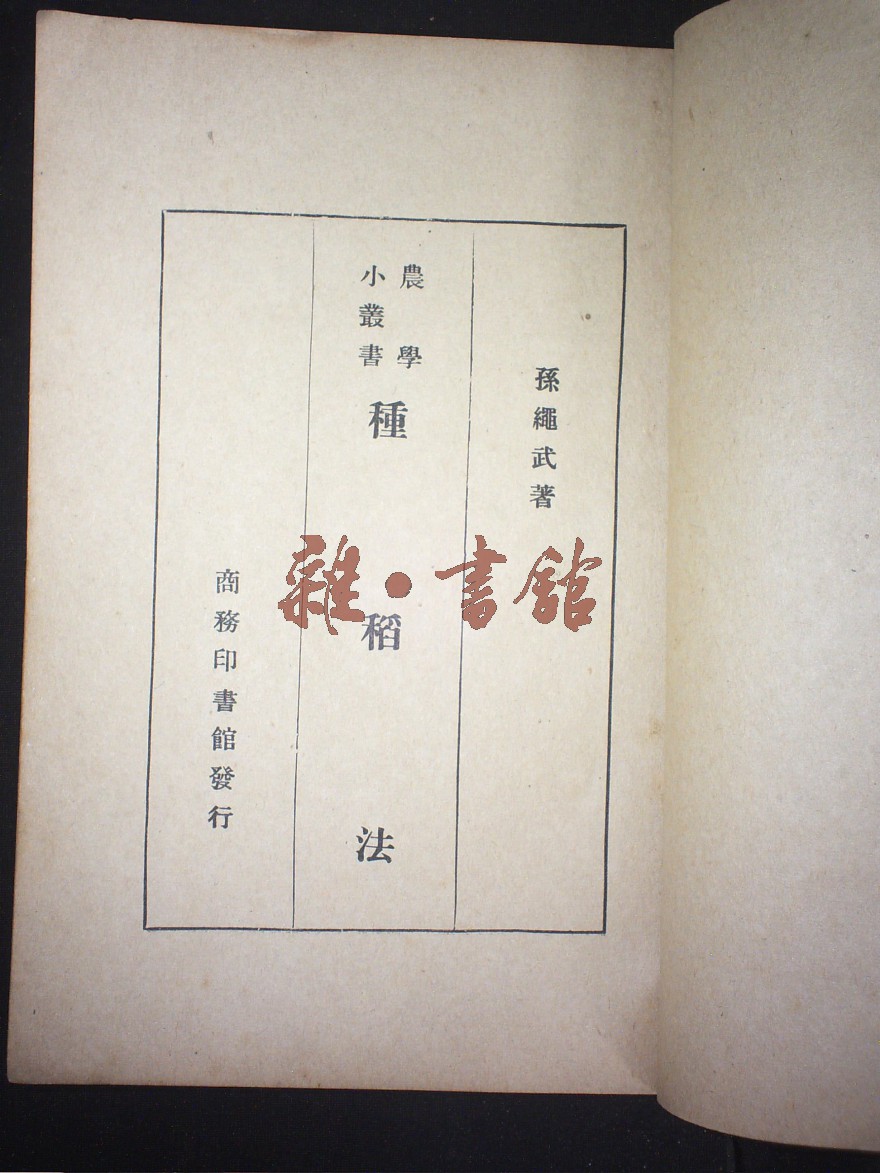 孫繩武著
農學
小叢書
種稻法
商務印書館發行
雜·書館